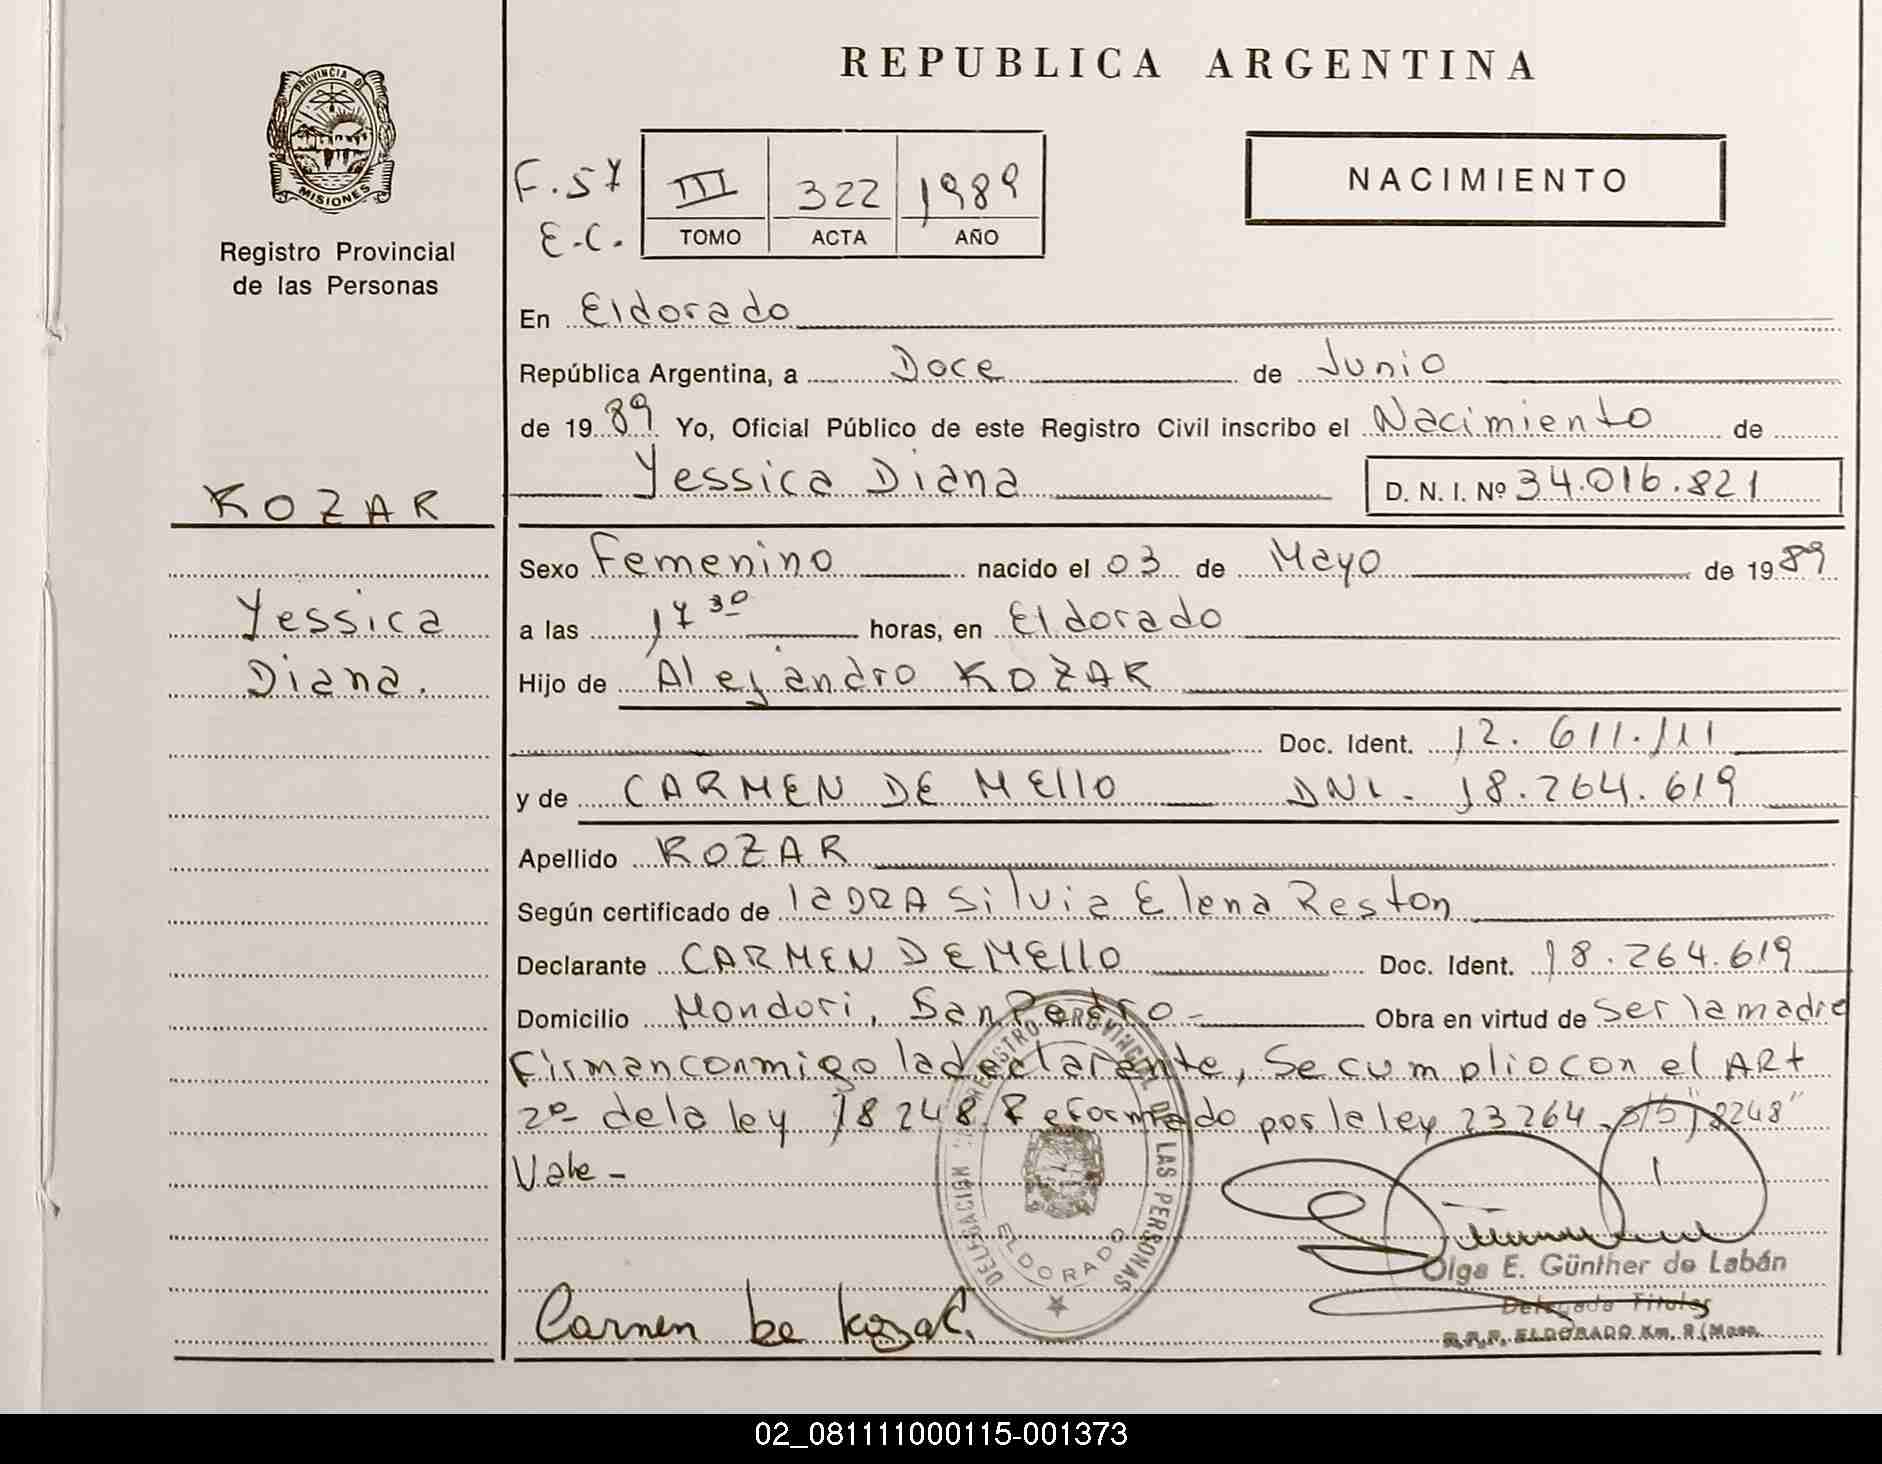 REPUBLICA ARGENTINA
PROVINCIA DE MISIONES
Registro Provincial
de las Personas
F. 57
E.C.
III 322 1989
TOMO ACTA AÑO
NACIMIENTO
En Eldorado
República Argentina, a Doce de Junio
de 1989 Yo, Oficial Público de este Registro Civil inscribo el Nacimiento de
Yessica Diana D. N. I. Nº 34.016.821
KOZAR
Yessica
Diana.
Sexo Femenino nacido el 03 de Mayo de 1989
a las 17 30 horas, en Eldorado
Hijo de Alejandro KOZAR
Doc. Ident. 12.611.111
y de CARMEN DE MEllO DNI. 18.264.619
Apellido KOZAR
Según certificado de laDRA Silvia Elena Reston
Declarante CARMEN DE MEllO Doc. Ident. 18.264.619
Domicilio Mondori, San Pedro - Obra en virtud de Ser la madre
Firman conmigo la declarante, Se cumplio con el ARt
2º de la ley 18248 Reformado por la ley 23264. s/b "18248"
Vale -
DELEGACION REGISTRO PROVINCIAL DE LAS PERSONAS
ELDORADO
Carmen be kozar.
Olga E. Günther de Labán
Delegada Titular
R.P.P. ELDORADO Km. 9 (Mnes.
02_081111000115-001373